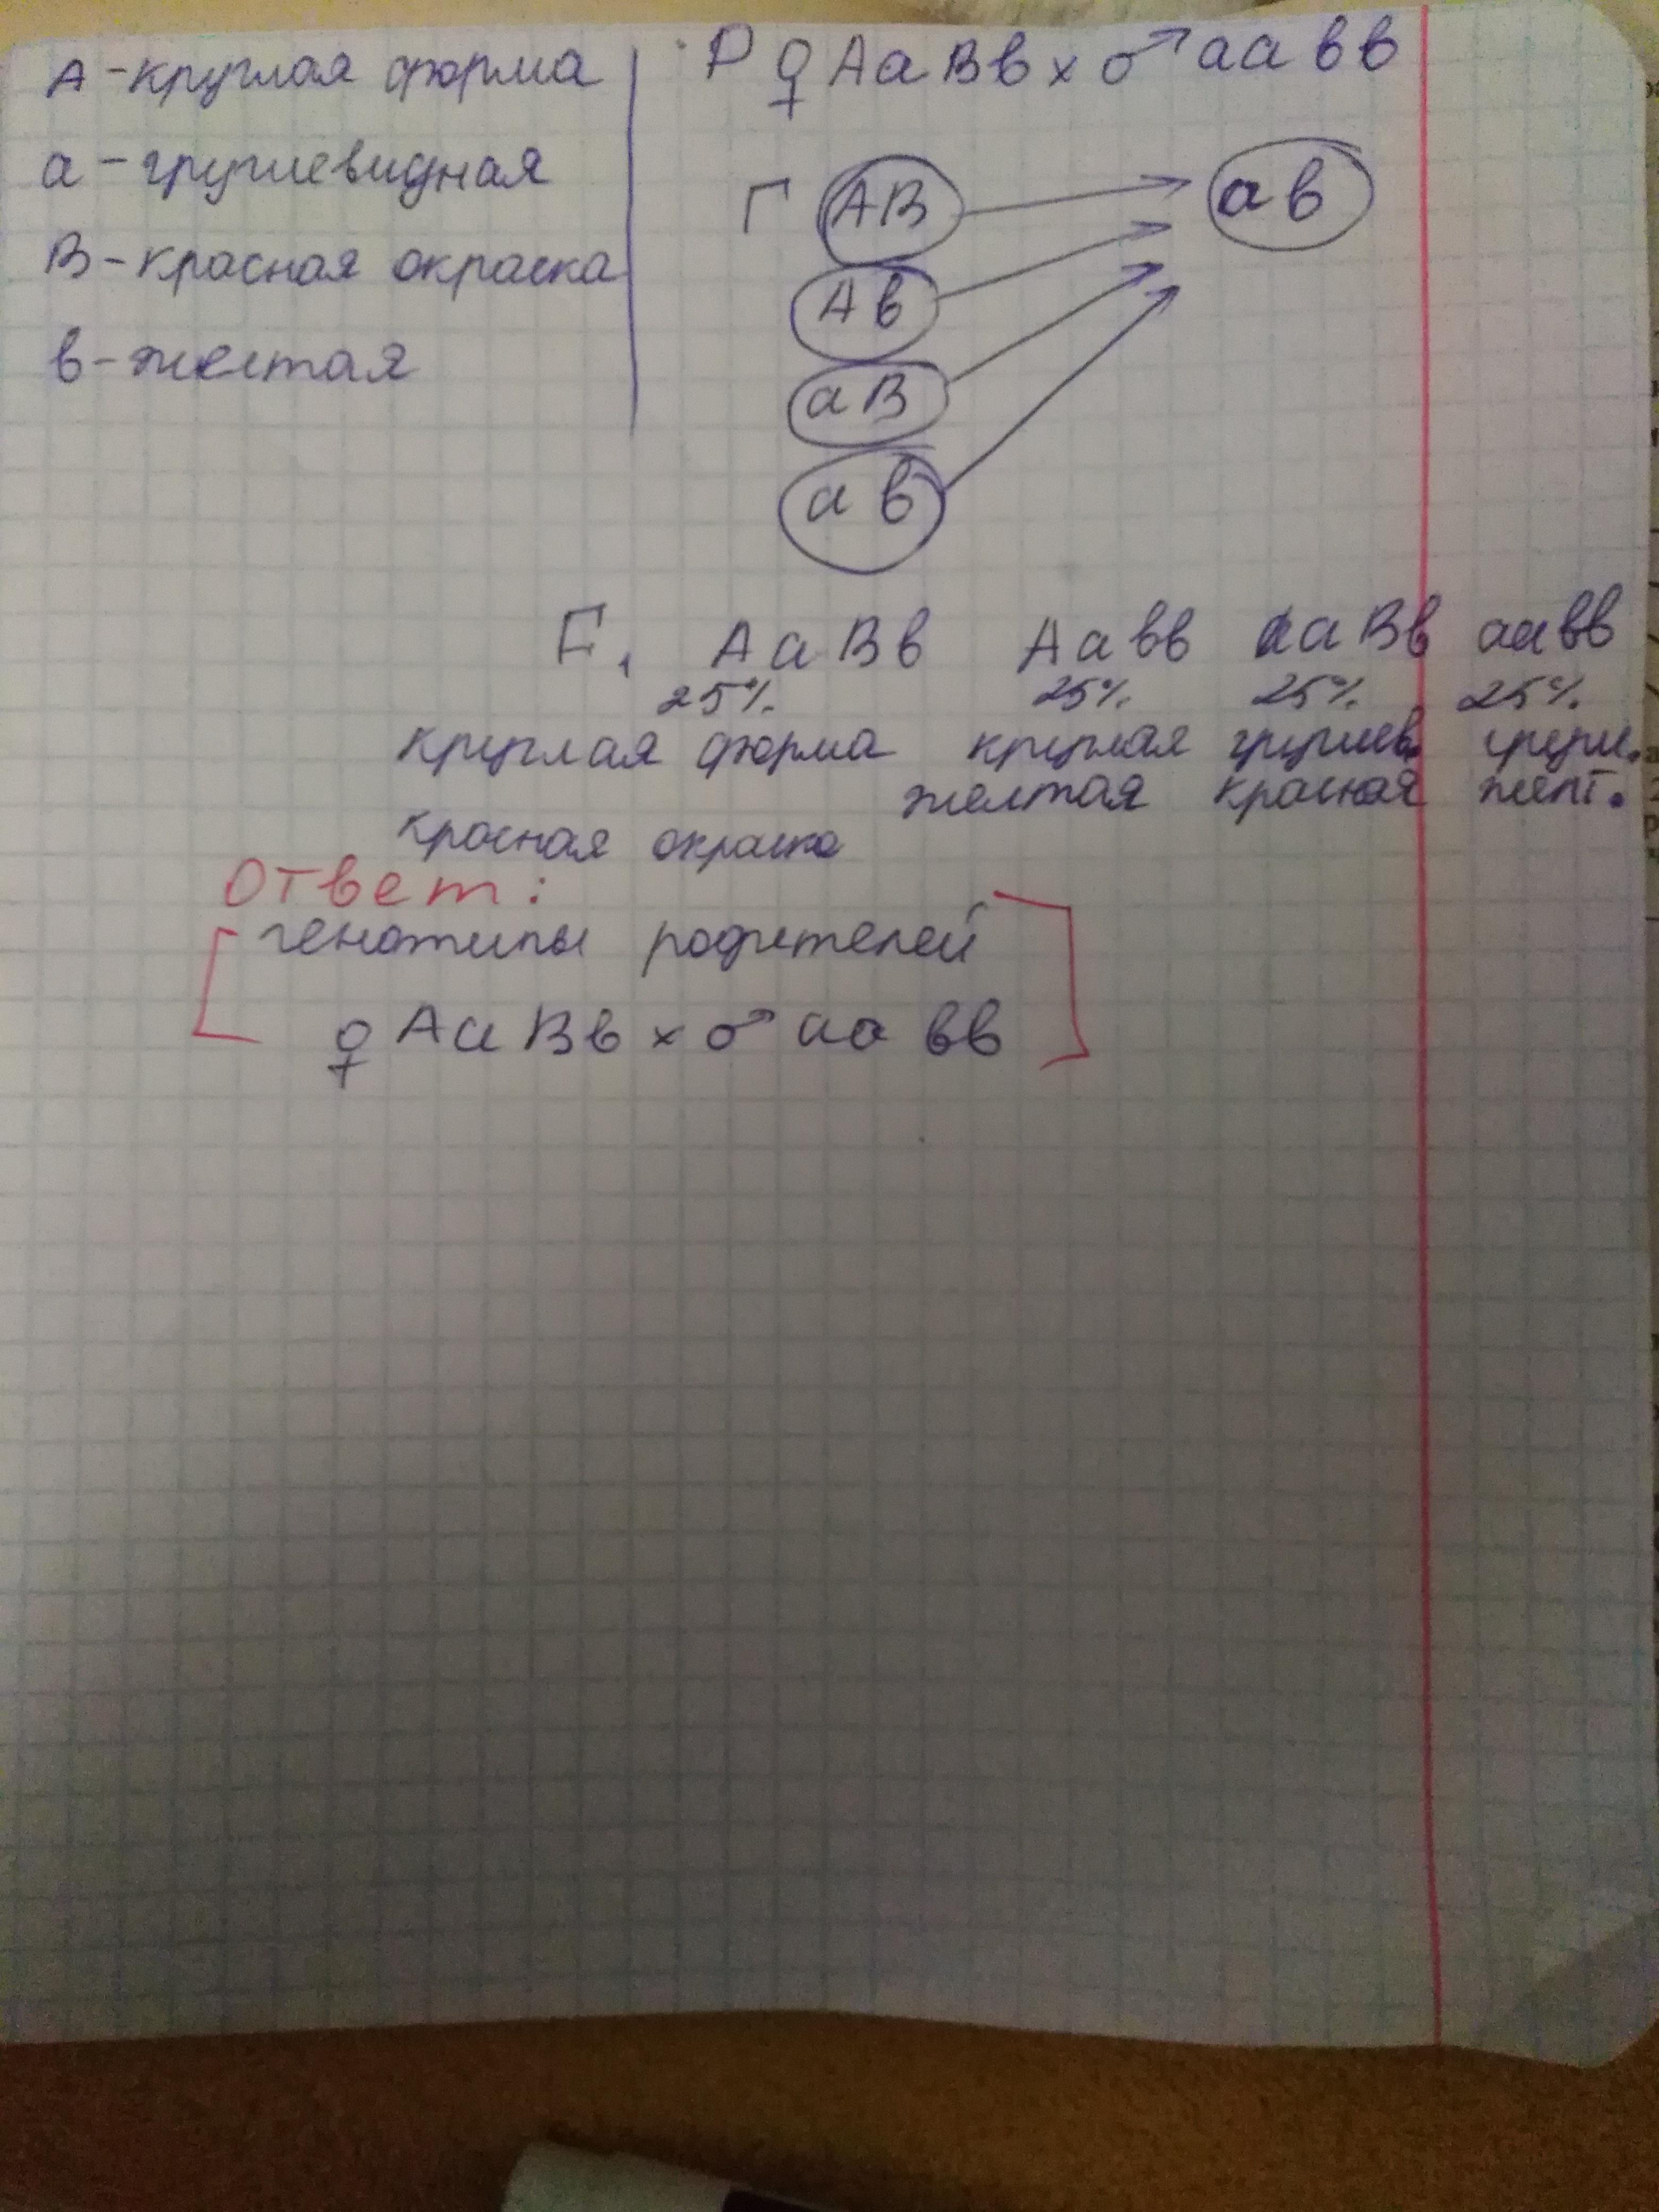 А - круглая форма
а - грушевидная
В - красная окраска
в - желтая
Р ♀ АаВв х ♂ аавв
Г АВ ав
Ав
аВ
ав
F₁ АаВв Аавв ааВв аавв
25% 25% 25% 25%
круглая форма круглая грушев. груш.
желтая красная желт.
красная окраска
Ответ:
генотипы родителей
♀ АаВв х ♂ аа вв